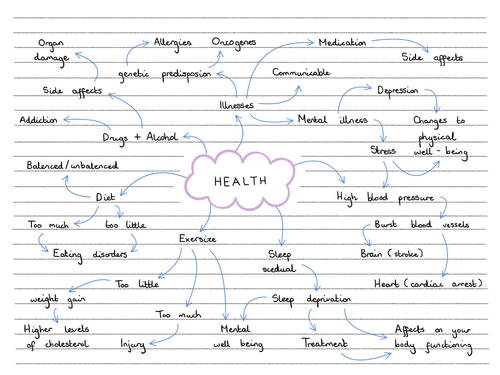 Organ
damage
Allergies
Oncogenes
Medication
Side affects
genetic predisposion
Communicable
Side affects
Illnesses
Depression
Addiction
Mental illness
Changes to
physical
well - being
Drugs + Alcohol
Stress
Balenced/unbalenced
HEALTH
High blood pressure
Diet
Too much
too little
Burst blood vessels
Eating disorders
Exersize
Sleep
scedual
Brain (stroke)
Heart (cardiac arrest)
Too little
weight gain
Sleep deprivation
Too much
Higher levels
of cholesterol
Injury
Mental
well being
Treatment
Affects on your
body functioning